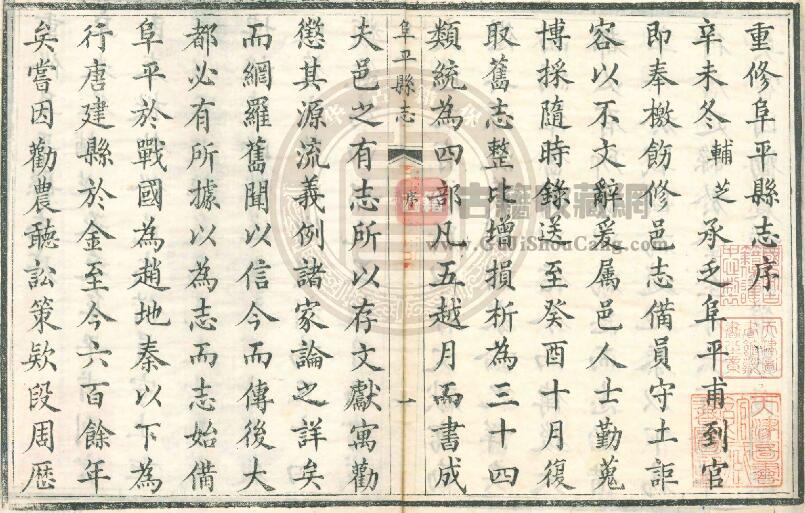 重修阜平縣志序
辛未冬輔芝承乏阜平甫到官
即奉檄飭修邑志備員守土詎
容以不文辭爰属邑人士勤蒐
博採隨時錄送至癸酉十月復
取舊志整比增損析為三十四
類統為四部凡五越月而書成
阜平縣志
序
一
夫邑之有志所以存文獻寓勸
懲其源流義例諸家論之詳矣
而網羅舊聞以信今而傳後大
都必有所據以為志而志始備
阜平於戰國為趙地秦以下為
行唐建縣於金至今六百餘年
矣嘗因勸農聽訟策欵段周歷
古籍收藏網
www.GuJiShouCang.com